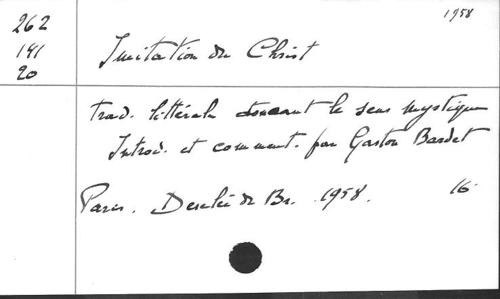 1958
262
141
20
Imitation du Christ
trad. littérale donnant le sens mystique
Introd. et comment. par Gaston Bardet
Paris. Desclée de Br. 1958. 16